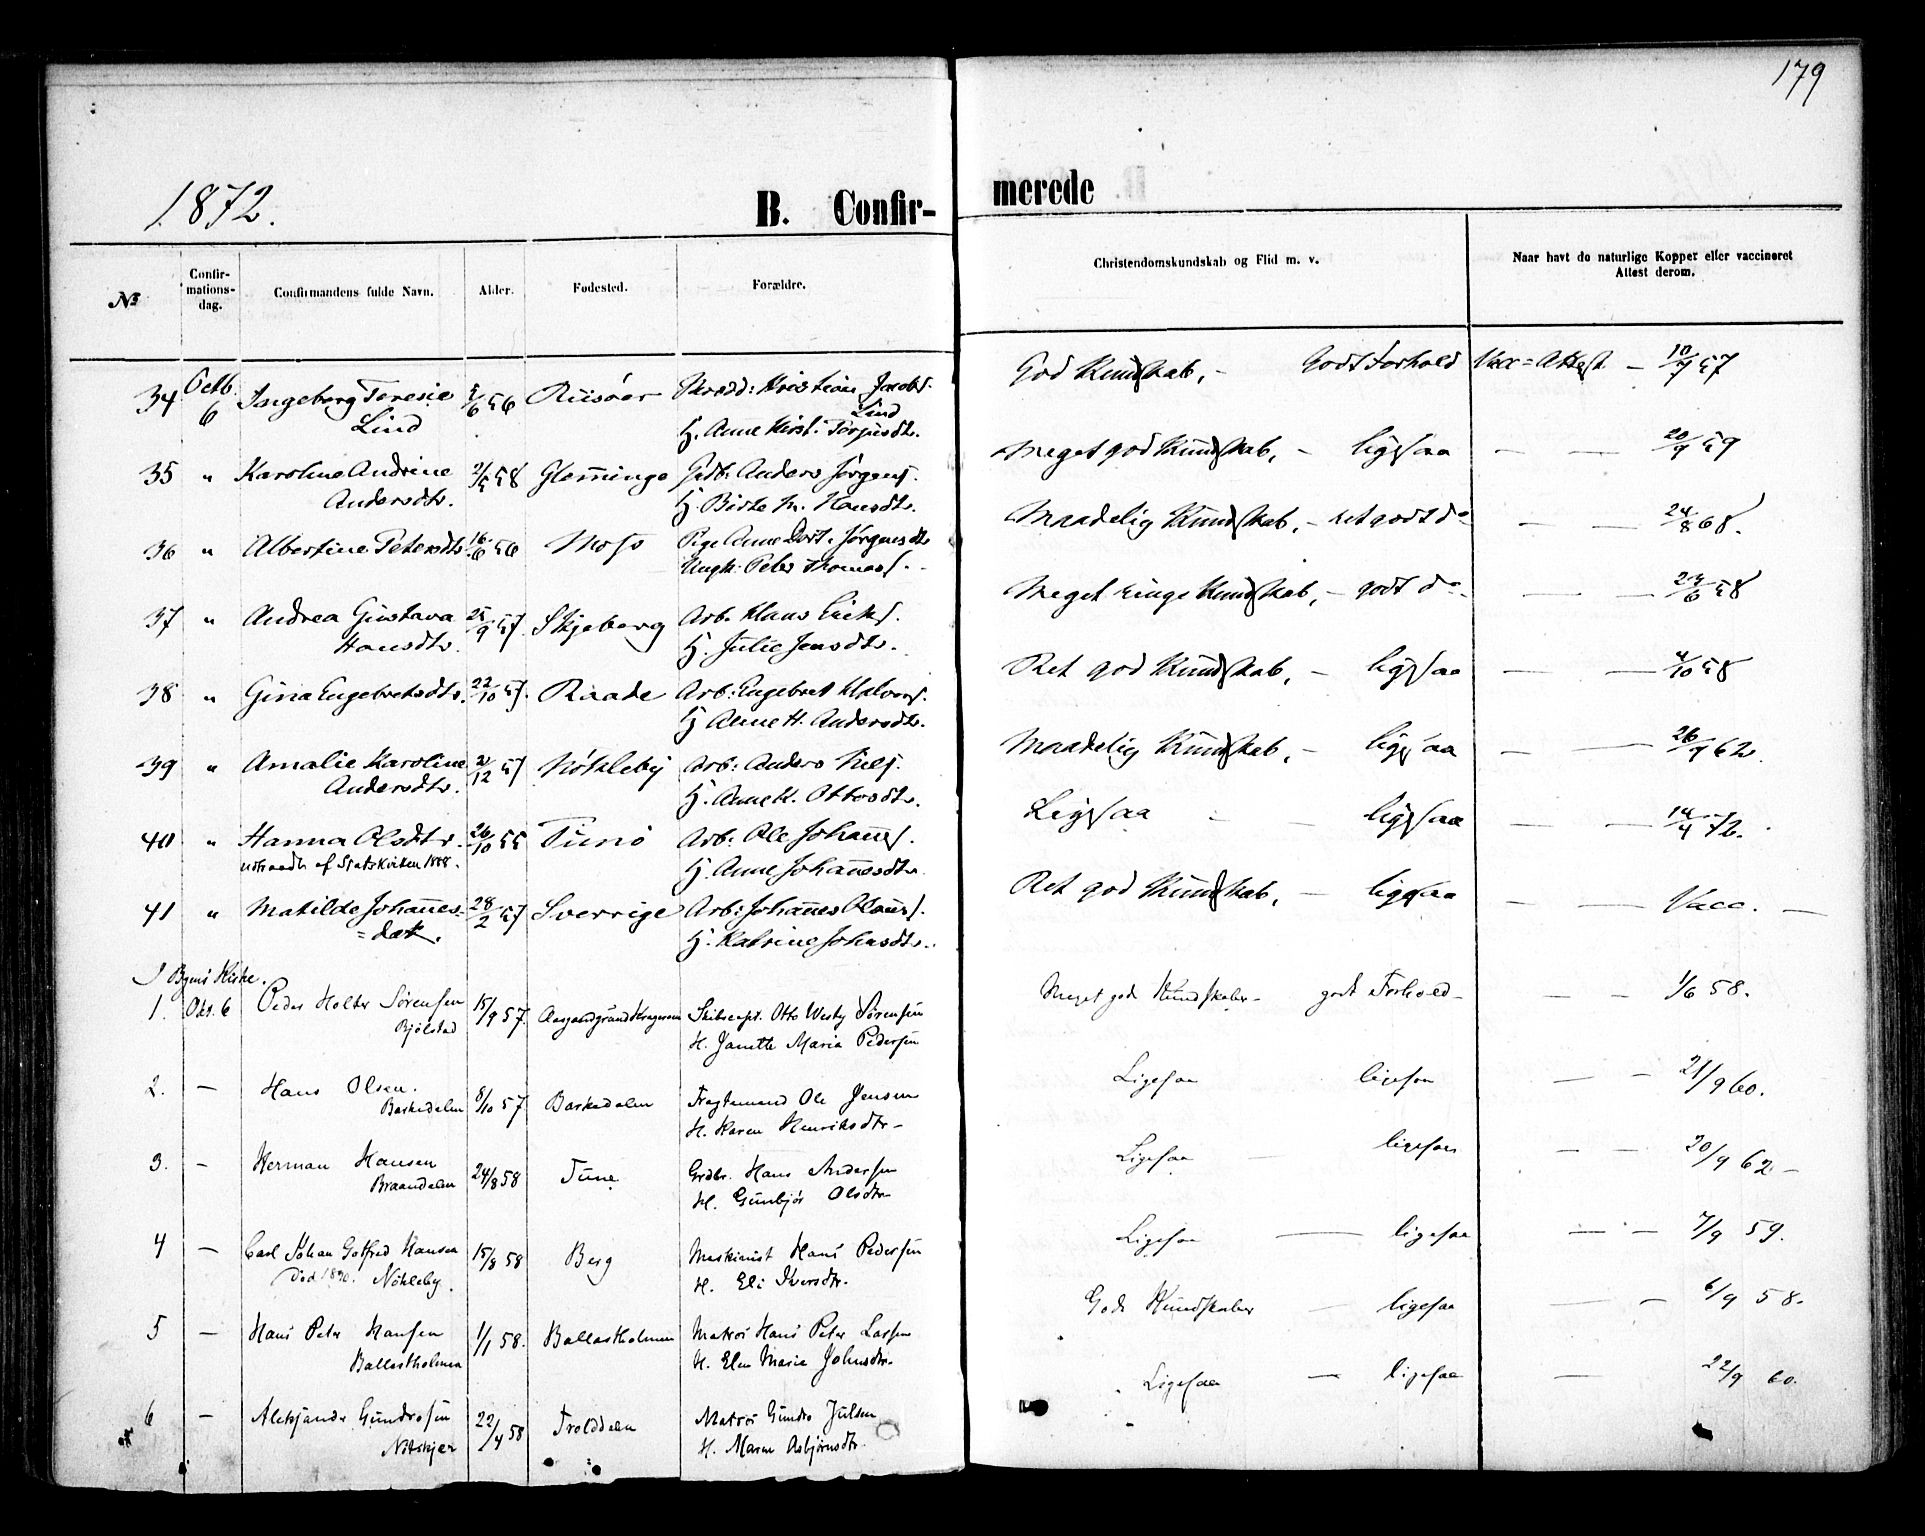 179
1872.
B. Confir-
merede
№
Confir-
mations-
dag.
Confirmandens fulde Navn.
Alder.
Fødested.
Forældre.
Christendomskundskab og Flid m. v.
Naar havt de naturlige Kopper eller vaccineret
Attest derom.
34 Octb. 6 Ingeborg Teresie 5/6 56 Riisöer Kristian Jacobs.
Lind Lind
H. Anne Kirst. Torjusdtr.
God Kundskab, - Godt Forhold Vacc=Attest - 10/9 57
35 " Karoline Andrine 2/5 58 Glemminge Gdb. Anders Jørgens.
Andersdtr. H. Birte M. Hansdtr.
Meget god Kundskab, - ligesaa — — 20/9 59
36 " Albertine Petersdtr. 16/6 56 Moss Pige Anne Dort. Jørgensdtr
Ungk. Peter Thomas.
Maadelig Kundskab, - ret godt do — — 24/8 68.
37 " Andrea Gustava 25/9 57. Skjeberg Arb. Klaus Ericks.
Hansdtr. H. Julie Jensdtr.
Meget ringe Kundskab, - godt do — — 24/6 58
38 " Gina Engebretsdtr. 22/10 57. Raade Arb: Engebret Halvors.
H. Anne H. Andersdtr.
Ret god Kundskab, - ligesaa — — 4/10 58
39 " Amalie Karoline 2/12 57 Nökleby Arb: Anders Niels.
Andersdtr. H. Anne K. Ottosdtr.
Maadelig Kundskab, - ligesaa — — 26/9 62.
40 " Hanna Olsdtr. 26/10 55 Tunö Arb: Ole Johañes.
udtraadt af Statskirken 1888. H. Anne Johañesdtr.
Ligesaa - - ligesaa — — 14/4 72.
41 " Matilde Johañes- 28/2 57 Sverrige Arb: Johañes Olaus.
=dat. H. Katrine Johasdtr.
Ret god Kundskab, - ligesaa - — Vacc. —
I Byens Kirke.
1. Okt. 6 Peder Holter Sörensen 15/9 57. Skibscapt. Otto Westy Sörensen
Bjölstad H. Janette Maria Pedersen
Meget gode Kundskaber - godt Forhold - — — 1/6 58.
2. — Hans Olsen. 8/10 57 Baskedalen Fragtemand Ole Jensen
Baskedalen H. Karen Henriksdtr -
Ligesaa ligesaa — — 21/9 60.
3. — Herman Hansen 24/8 58 Tune Grdbr. Hans Andersen
Braandalen H. Gunbjör Olsdtr -
Ligesaa — ligesaa — — 20/9 62 -
4 — Carl Johan Gotfred Hansen 15/8 58 Berg Maskinist Hans Pedersen
Död 1890. Nökleby. H. Eli Iversdtr.
Ligesaa — ligesaa — — 7/9 59.
5 — Hans Peter Hansen 1/1 58. Ballastholmen Matros Hans Peter Larsen
Ballastholmen H. Elen Maria Johnsdtr.
Gode Kundskaber — ligesaa — — 6/9 58.
6 — Aleksander Gundrosen 22/4 58 Trolddalen Matros Gundro Julsen
H. Maren Asbjørnsdtr.
Ligesaa — ligesaa — 22/9 60.